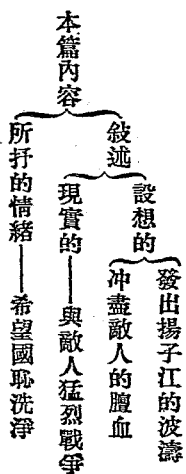 本篇內容
敍述
設想的
發出揚子江的波濤
冲盡敵人的膻血
現實的——與敵人猛烈戰爭
所抒的情緒——希望國恥洗淨